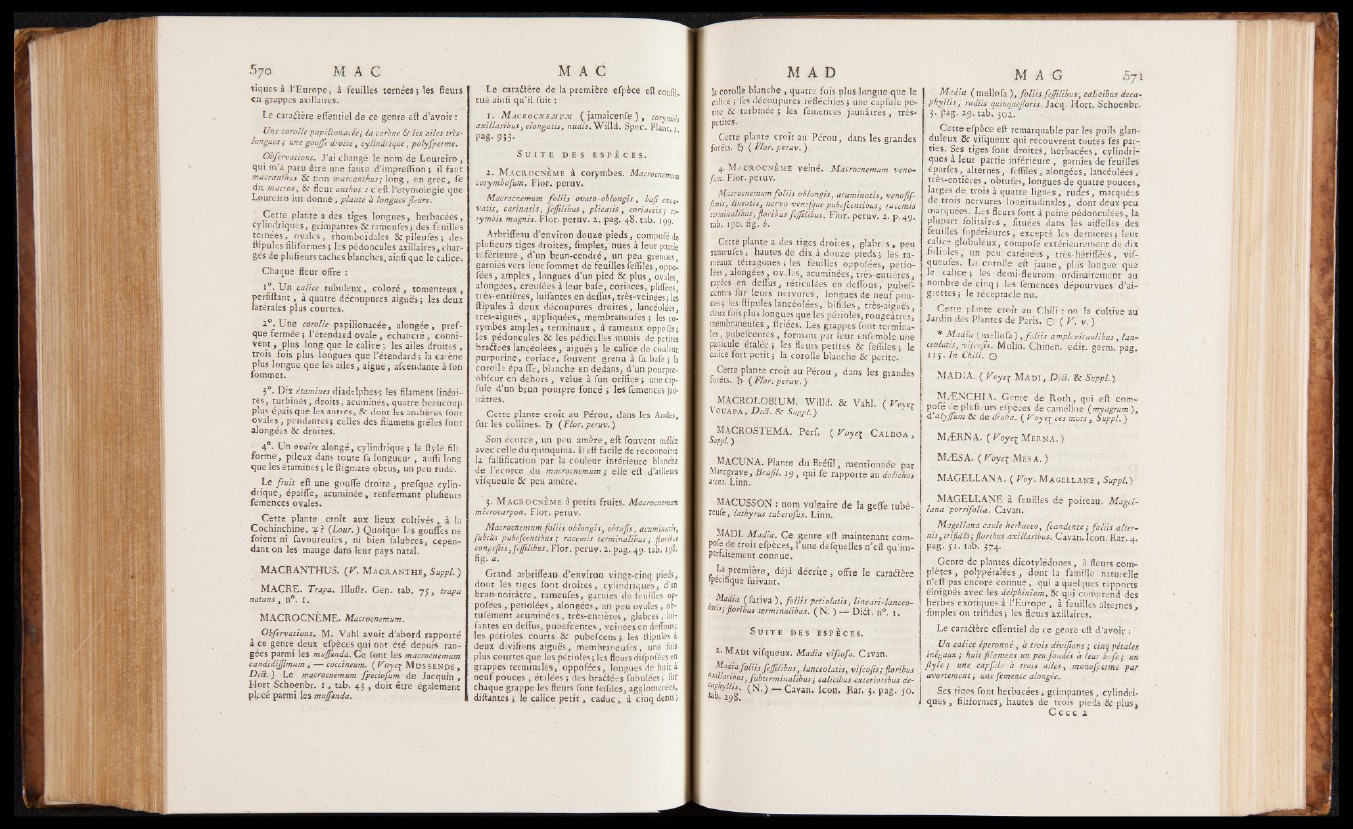 570 MAC
tiques à l'Europe, à feuilles ternées ; les fleurs
en grappes axillaires.
Le caractère essentiel de ce genre est d'avoir :
Une corolle papilionacée; la carène & les ailes très-
longues ; une gousse droite, cylindrique, polysperme.
Observations. J'ai changé le nom de Loureiro,
qui m'a paru être une faute d'impression ; il faut
macranthus & non marcanthus; long, en grec, se
dit macros, & fleur anthos : c'est l'étymologie que
Loureiro lui donne, plante à longues fleurs.
Cette plante a des tiges longues, herbacées,
cylindriques, grimpantes & rameuses; des feuilles
ternées, ovales, rhomboïdales & pileuses; des
stipules filiformes ; les pédoncules axillaires, char-
gés de plusieurs taches blanches, ainsi que le calice.
Chaque fleur offre :
1°. Un calice tubuleux, coloré, tomenteux,
persistant, à quatre découpures aiguës; les deux
latérales plus courtes.
2°. Une corolle papilionacée, alongée, pres-
que fermée; l'étendard ovale, échancré, conni-
vent, plus long que le calice; les ailes droites,
trois fois plus longues que l'étendard; la carène
plus longue que les ailes, aiguë, ascendante à son
sommet.
3°. Dix étamines diadelphes; les filamens linéai-
res, turbinés, droits, acuminés, quatre beaucoup
plus épais que les autres, & dont les anthères sont
ovales, pendantes; celles des filamens grêles sont
alongées & droites.
4°. Un ovaire alongé, cylindrique; le style fili-
forme, pileux dans toute sa longueur, aussi long
que les étamines; le stigmate obtus, un peu rude.
Le fruit est une gousse droite, presque cylin-
drique, épaisse, acuminée, renfermant plusieurs
semences ovales.
Cette plante croît aux lieux cultivés, à la
Cochinchine. ♃? (Lour.) Quoique les gousses ne
soient ni savoureuses, ni bien salubres, cepen-
dant on les mange dans leur pays natal.
MACRANTHUS. (V. MACRANTHE, Suppl.)
MACRE. Trapa. Illustr. Gen. tab. 75, trapa
natans, n°. 1.
MACROCNÈME. Macrocnemum.
Observations. M. Vahl avoit d'abord rapporté
à ce genre deux espèces qui ont été depuis ran-
gées parmi les mussænda. Ce sont les macrocnemum
candidissimum, — coccineum. (Voyez MUSSENDE,
Dict.) Le macrocnemum speciosum de Jacquin,
Hort Schoenbr. 1, tab. 43, doit être également
placé parmi les mussænda.
MAC
Le caractère de la première espèce est consti-
tué ainsi qu'il suit :
1. MACROCNEMUM (jamaicense), corymbis
axillaribus, elongatis, nudis. Willd. Spec. Plant. 1,
pag. 933.
SUITE DES ESPÈCES.
2. MACROCNÈME à corymbes. Macrocnemum
corymbosum. Flor. peruv.
Macrocnemum foliis ovato-oblongis, basi exca-
vatis, carinatis, sessilibus, plicatis, coriaceis; co-
rymbis magnis. Flor. peruv. 2. pag. 48. tab. 199.
Arbrisseau d'environ douze pieds, composé de
plusieurs tiges droites, simples, nues à leur partie
inférieure, d'un brun-cendré, un peu grenues,
garnies vers leur sommet de feuilles sessiles, oppo-
sées, amples, longues d'un pied & plus, ovales,
alongées, creusées à leur base, coriaces, plissées,
très-entières, luisantes en dessus, très-veinées; les
stipules à deux découpures droites, lancéolées,
très-aiguës, appliquées, membraneuses; les co-
rymbes amples, terminaux, à rameaux opposés;
les pédoncules & les pédicelles munis de petites
bractées lancéolées, aiguës; le calice de couleur
purpurine, coriace, souvent grenu à sa base; la
corolle épaisse, blanche en dedans, d'un pourpre-
obscur en dehors, velue à son orifice; une cap-
sule d'un brun pourpre foncé; les semences jau-
nâtres.
Cette plante croît au Pérou, dans les Andes,
sur les collines. ♄ (Flor. peruv.)
Son écorce, un peu amère, est souvent mêlée
avec celle du quinquina. Il est facile de reconnoître
la falsification par la couleur intérieure blanche
de l'écorce du macrocnemum; elle est d'ailleurs
visqueuse & peu amère.
3. MACROCNÈME à petits fruits. Macrocnemum
microcarpon. Flor. peruv.
Macrocnemum foliis oblongis, obtusis, acuminatis,
subtùs pubescentibus; racemis terminalibus; floribus
congestis, sessilibus. Flor. peruv. 2. pag. 49. tab. 198.
fig. a.
Grand arbrisseau d'environ vingt-cinq pieds,
dont les tiges sont droites, cylindriques, d'un
brun-noirâtre, rameuses, garnies de feuilles op-
posées, pétiolées, alongées, un peu ovales, ob-
tusément acuminées, très-entières, glabres, lui-
santes en dessus, pubescentes, veinées en dessous;
les pétioles courts & pubescens; les stipules à
deux divisions aiguës, membraneuses, une fois
plus courtes que les pétioles; les fleurs disposées en
grappes terminales, opposées, longues de huit à
neuf pouces, étalées; des bractées subulées; sur
chaque grappe les fleurs sont sessiles, agglomérées,
distantes; le calice petit, caduc, à cinq dents;
MAD
la corolle blanche, quatre fois plus longue que le
calice; ses découpures réfléchies; une capsule pe-
tite & turbinée; les semences jaunâtres, très-
petites.
Cette plante croît au Pérou, dans les grandes
forêts. ♄ (Flor. peruv.)
4. MACROCNÈME veiné. Macrocnemum veno-
sum. Flor. peruv.
Macrocnemum foliis oblongis, acuminatis, venosis-
simis, lineatis, nervo venisque pubescentibus; racemis
terminalibus, floribus sessilibus. Flor. peruv. 2. p. 49.
tab. 190. fig. b.
Cette plante a des tiges droites, glabres, peu
rameuses, hautes de dix à douze pieds; les ra-
meaux tétragones; les feuilles opposées, pétio-
lées, alongées, ovales, acuminées, très-entières,
rayées en dessus, réticulées en dessous, pubes-
centes sur leurs nervures, longues de neuf pou-
ces; les stipules lancéolées, bifides, très-aiguës,
deux fois plus longues que les pétioles, rougeâtres,
membraneuses, striées. Les grappes sont termina-
les, pubescentes, formant par leur ensemble une
panicule étalée; les fleurs petites & sessiles; le
calice fort petit; la corolle blanche & petite.
Cette plante croît au Pérou, dans les grandes
forêts. ♄ (Flor. peruv.)
MACROLOBIUM. Willd. & Vahl. (Voyez
VOUAPA, Dict. & Suppl.)
MACROSTEMA. Perf. (Voyez CALBOA,
Suppl.)
MACUNA. Plante du Brésil, mentionnée par
Marcgrave, Brasil. 19, qui se rapporte au dolichos
urens. Linn.
MACUSSON : nom vulgaire de la gesse tubé-
reuse, lathyrus tuberosus. Linn.
MADI. Madia. Ce genre est maintenant com-
posé de trois espèces, l'une desquelles n'est qu'im-
parfaitement connue.
La première, déjà décrite, offre le caractère
spécifique suivant.
Madia (sativa), foliis petiolatis, lineari-lanceo-
latis; floribus terminalibus. (N.) — Dict. n°. 1.
SUITE DES ESPÈCES.
2. MADI visqueux. Madia viscosa. Cavan.
Madia foliis sessilibus, lanceolatis, viscosis; floribus
axillaribus, subterminalibus; calicibus exterioribus de-
caphyllis. (N.) — Cavan. Icon. Rar. 3. pag. 50.
tab. 298.
MAG 571
Madia (mellosa), foliis sessilibus, calicibus deca-
phyllis, radiis quinquefloris. Jacq. Hort. Schoenbr.
3. pag. 29. tab. 302.
Cette espèce est remarquable par les poils glan-
duleux & visqueux qui recouvrent toutes ses par-
ties. Ses tiges sont droites, herbacées, cylindri-
ques à leur partie inférieure, garnies de feuilles
éparses, alternes, sessiles, alongées, lancéolées,
très-entières, obtuses, longues de quatre pouces,
larges de trois à quatre lignes, rudes, marquées
de trois nervures longitudinales, dont deux peu
marquées. Les fleurs sont à peine pédonculées, la
plupart solitaires, situées dans les aisselles des
feuilles supérieures, excepté les dernières; leur
calice globuleux, composé extérieurement de dix
folioles, un peu carénées, très-hérissées, vis-
queuses. La corolle est jaune, plus longue que
le calice; les demi-fleurons ordinairement au
nombre de cinq; les semences dépourvues d'ai-
grettes; le réceptacle nu.
Cette plante croît au Chili : on la cultive au
Jardin des Plantes de Paris. ☉ (V. v.)
* Madia (mellosa), foliis amplexicaulibus, lan-
ceolatis, viscosis. Molin. Chinen. edit. germ. pag.
115. In Chili. ☉
MADIA. (Voyez MADI, Dict. & Suppl.)
MÆNCHIA. Genre de Roth, qui est com-
posé de plusieurs espèces de cameline (myagrum),
d'alyssum & de draba. (Voyez ces mots, Suppl.)
MÆRNA. (Voyez MERNA.)
MÆSA. (Voyez MESA.)
MAGELLANA. (Voy. MAGELLANE, Suppl.)
MAGELLANE à feuilles de poireau. Magel-
lana porrifolia. Cavan.
Magellana caule herbaceo, scandente; foliis alter-
nis, trifidis; floribus axillaribus. Cavan. Icon. Rar. 4.
pag. 51. tab. 374.
Genre de plantes dicotylédones, à fleurs com-
plètes, polypétalées, dont la famille naturelle
n'est pas encore connue, qui a quelques rapports
éloignés avec les delphinium, & qui comprend des
herbes exotiques à l'Europe, à feuilles alternes,
simples ou trifides; les fleurs axillaires.
Le caractère essentiel de ce genre est d'avoir :
Un calice éperonné, à trois divisions; cinq pétales
inégaux; huit filamens un peu soudés à leur base; un
style; une capsule à trois ailes, monosperme par
avortement; une semence alongée.
Ses tiges sont herbacées, grimpantes, cylindri-
ques, filiformes, hautes de trois pieds & plus,
Cccc 2